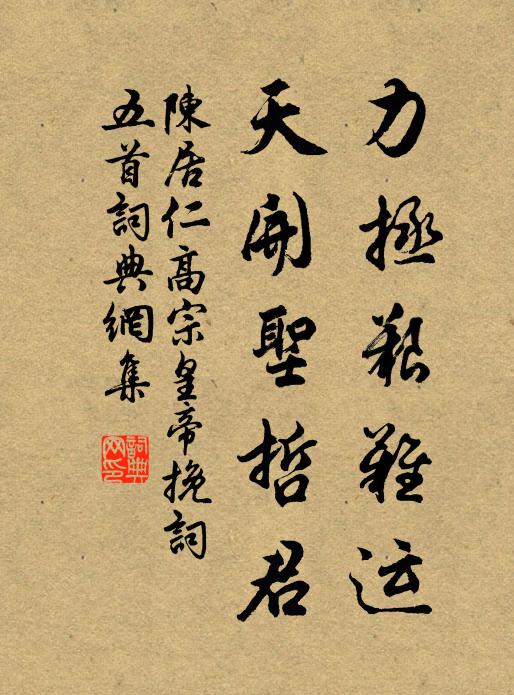 力拯艱難运
天開聖哲君
陳居仁高宗皇帝挽詞
五首詞典網集
詞典网印